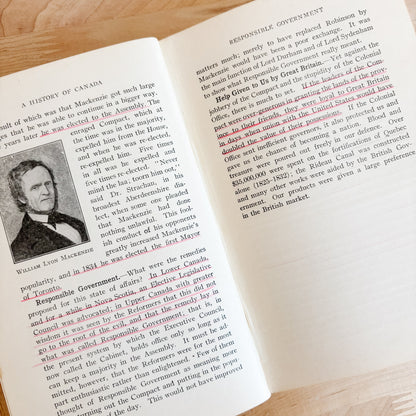 A HISTORY OF CANADA
sult of which was that Mackenzie got such large
that he was able to continue in a bigger way.
years later he was elected to the Assembly. The
Compact, which at
the time was in the majority,
expelled him from the House,
and when he was re-elected
re-expelled him. Five times
in all was he expelled and
five times re-elected. "Never
mind the lad, toorn him oot,"
said Dr. Strachan, in his
broadest Aberdeenshire dia-
lect, when some one pleaded
that Mackenzie had done
nothing unlawful. This fool-
ish conduct of his opponents
greatly increased Mackenzie's
WILLIAM LYON MACKENZIE
popularity, and in 1834 he was elected the first Mayor
of Toronto.
Responsible Government.—What were the remedies
proposed for this state of affairs? In Lower Canada,
and for a while in Nova Scotia, an Elective Legislative
Council was advocated; in Upper Canada with greater
wisdom it was seen by the Reformers that this did not
go to the root of the evil, and that the remedy lay in
what was called Responsible Government; that is, in
the present system by which the Executive Council,
now called the Cabinet, holds office only so long as it
can keep a majority in the Assembly. It must be ad-
mitted, however, that the Reformers were in most
part enthusiastic rather than enlightened. Few of them
thought of Responsible Government as meaning more
turning out the Compact and putting in the popu-
of the day. This would not have improved
RESPONSIBLE GOVERNMENT
matters much; merely to have replaced Robinson by
Mackenzie would have been a poor exchange. It was
the main function of Lord Durham and of Lord Sydenham
to show what Responsible Government really meant.
Help Given to Us by Great Britain.—Yet against the
jobbery of the Compact and the stupidity of the Colonial
Office, there is much to set. If the leaders of the Com-
pact were over generous in granting the lands of the prov-
ince to their friends, they were loyal to Great Britain
in days when union with the United States would have
doubled the value of their possessions. If the Colonial
Office sent inefficient governors, it also protected us and
gave us the chance of becoming a nation. Blood and
treasure were spent freely in our defence. Over
$35,000,000 were spent on the fortifications of Quebec
alone (1825-1832), the Rideau Canal was constructed,
and many other works were aided by the British Gov-
ernment. Our products were given a large preference
in the British market.